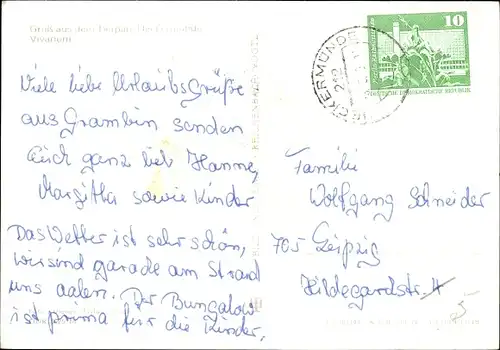 Gruß aus dem Tierpark Ueckermünde
Vivarium
Viele liebe Urlaubsgrüße
aus Grambin senden
Euch ganz lieb Hanne,
Margitta sowie Kinder
Das Wetter ist sehr schön,
wir sind garade am Strand
uns aalen. Der Bungalow
ist prima für die Kinder.
UECKERMÜNDE
10
DEUTSCHE DEMOKRATISCHE REPUBLIK
Familie
Wolfgang Schneider
705 Leipzig
Hildegardstr. 4
5